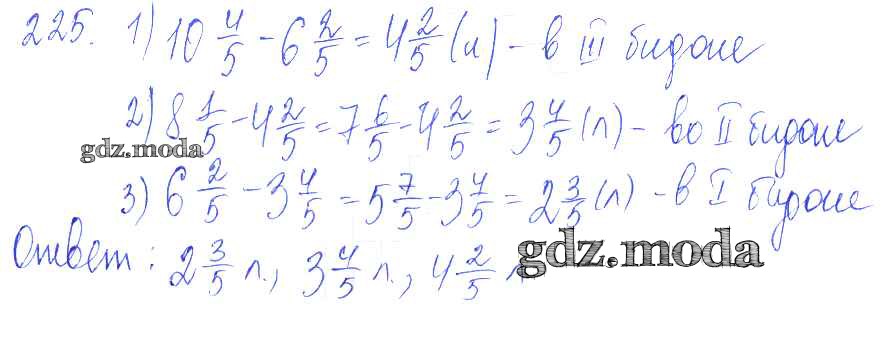 225. 1) 10 4/5 - 6 2/5 = 4 2/5 (л) - в III бидоне
2) 8 1/5 - 4 2/5 = 7 6/5 - 4 2/5 = 3 4/5 (л) - во II бидоне
gdz.moda
3) 6 2/5 - 3 4/5 = 5 7/5 - 3 4/5 = 2 3/5 (л) - в I бидоне
Ответ: 2 3/5 л., 3 4/5 л., 4 2/5 л
gdz.moda